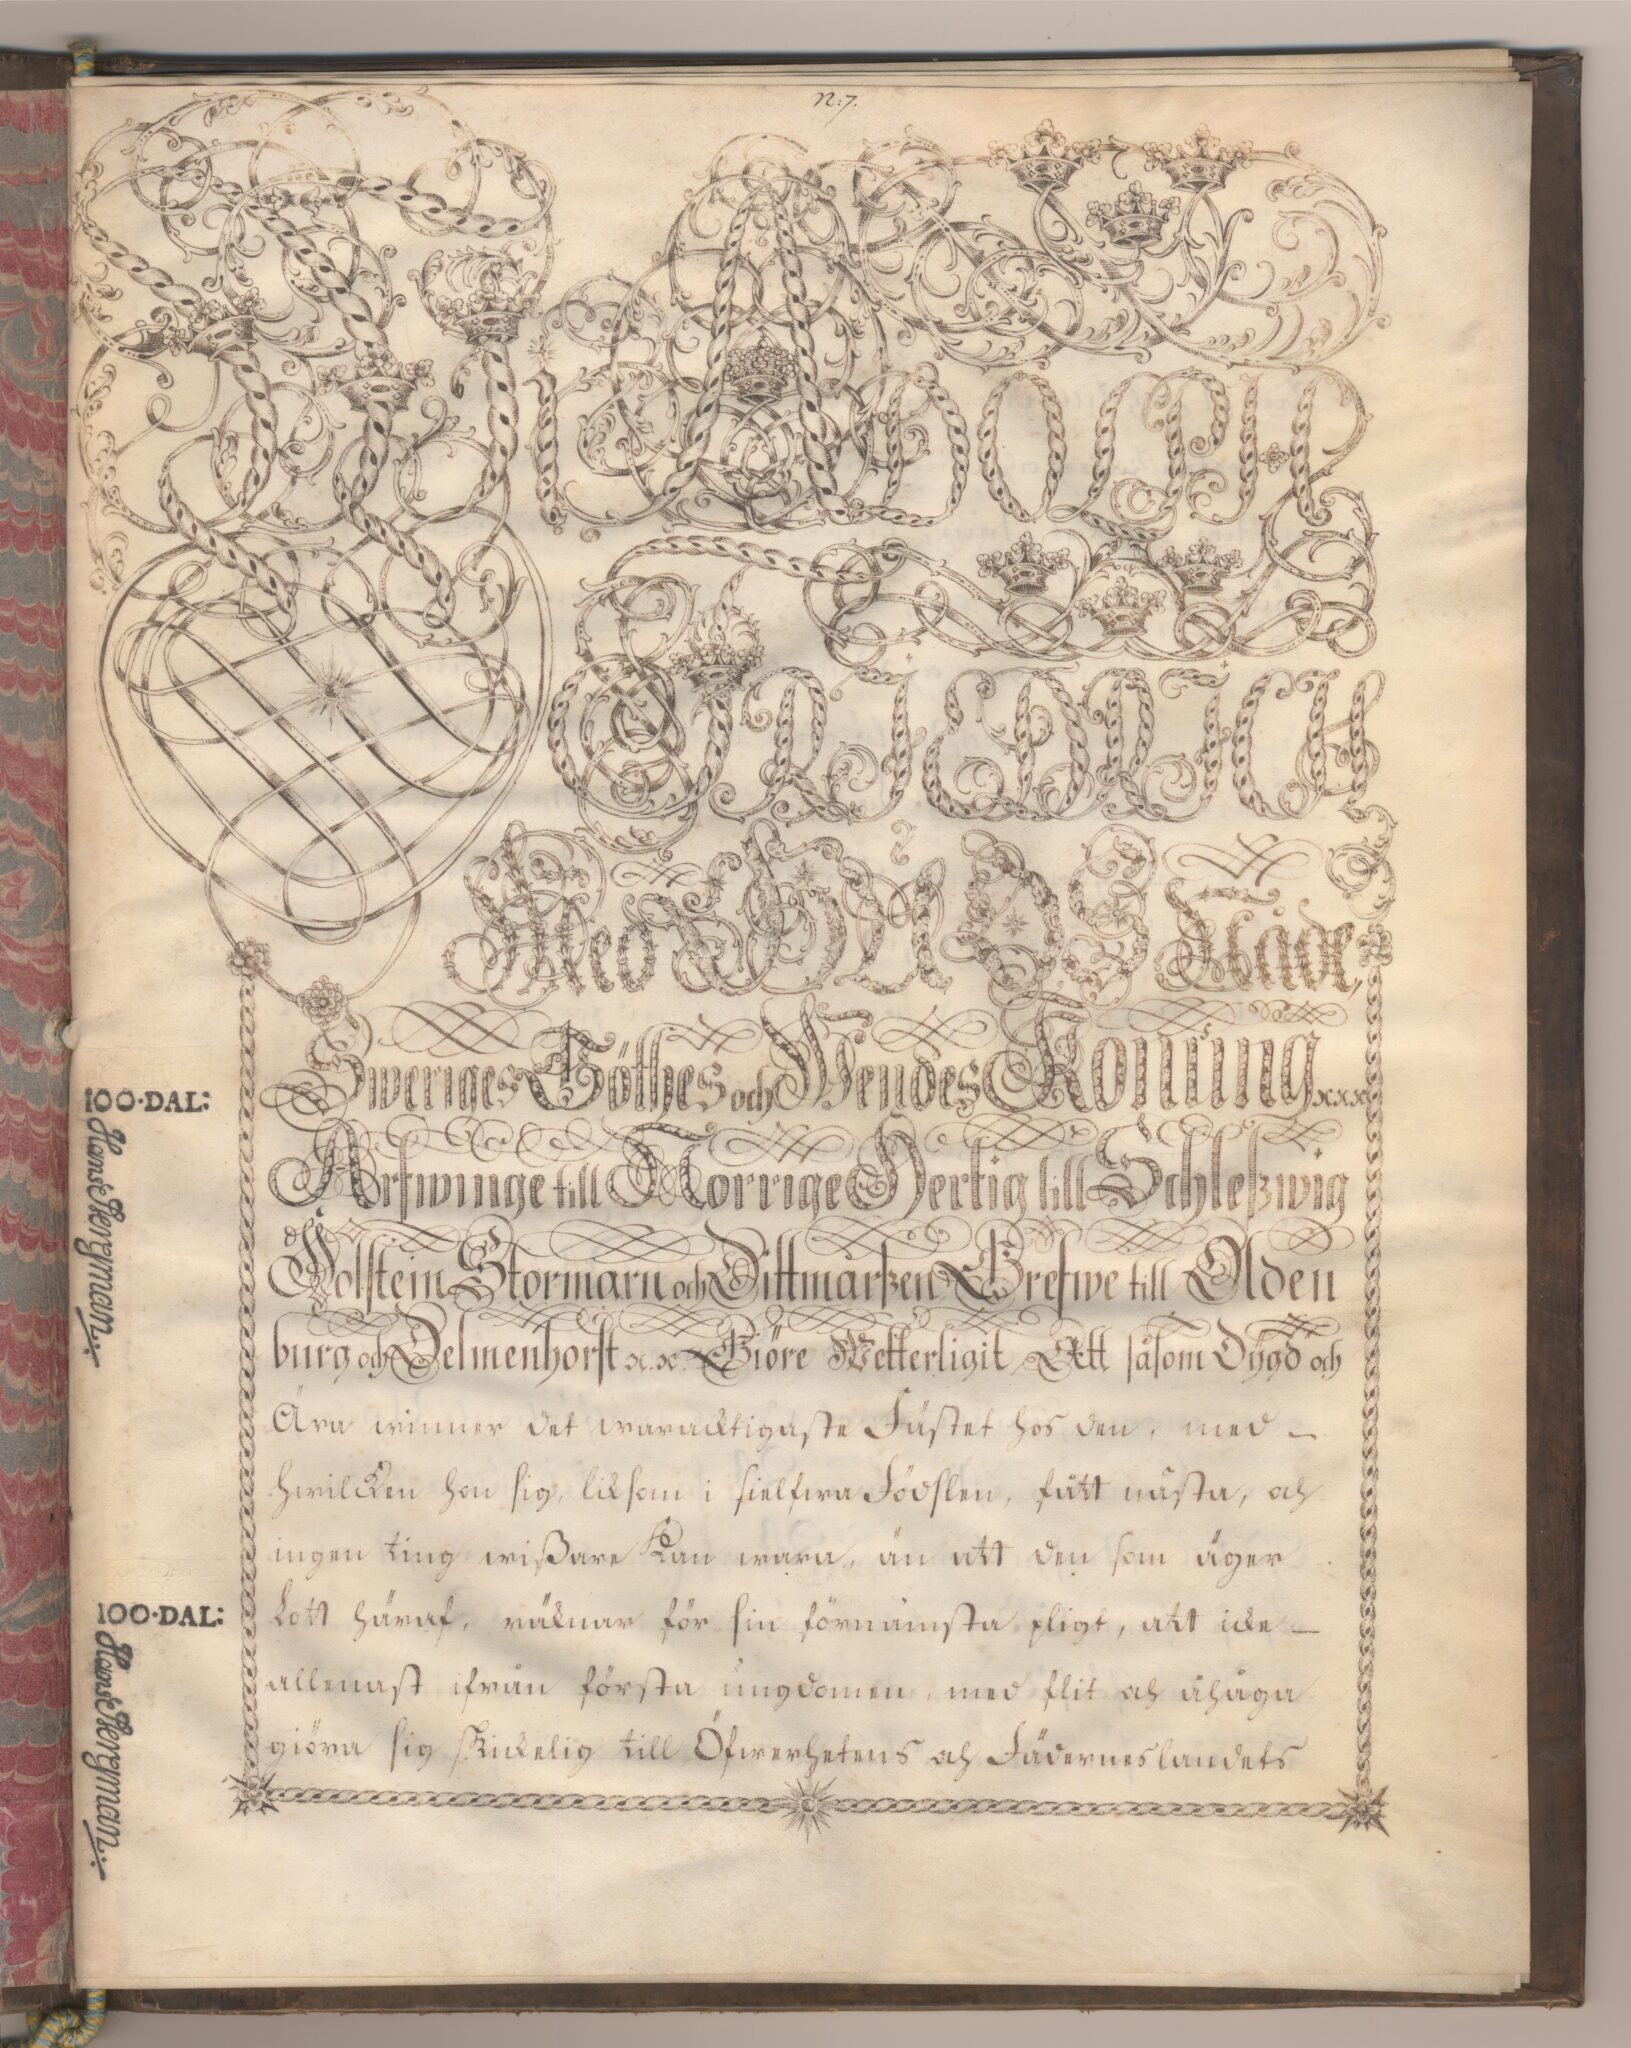 N:7.
Wÿ ADOLPH
FRIEDRICH
Med GUDS Nåde,
Sweriges Göthes och Wendes Konung xxx
Arfwinge till Norrige Hertig till Schleßwig
Holstein Stormarn och Dittmarßen, Grefwe till Olden
burg och Delmenhorst x.x. Giöre Wetterligit Att såsom Dygd och
Ära winner det waracktigaste Fästet hos den, med –
hwilcken hon sig, liksom i sielfwa Födslen, fått nästa, och
ingen ting wißare kan wara, än att den som äger
Lott häraf, räknar för sin förnämsta pligt, att icke –
allenast ifrån första ungdomen, med flit och åhåga
giöra sig skickelig till Öfwerhetens och Fäderneslandets
100·DAL:
Hans Bergman.
100·DAL:
Hans Bergman.